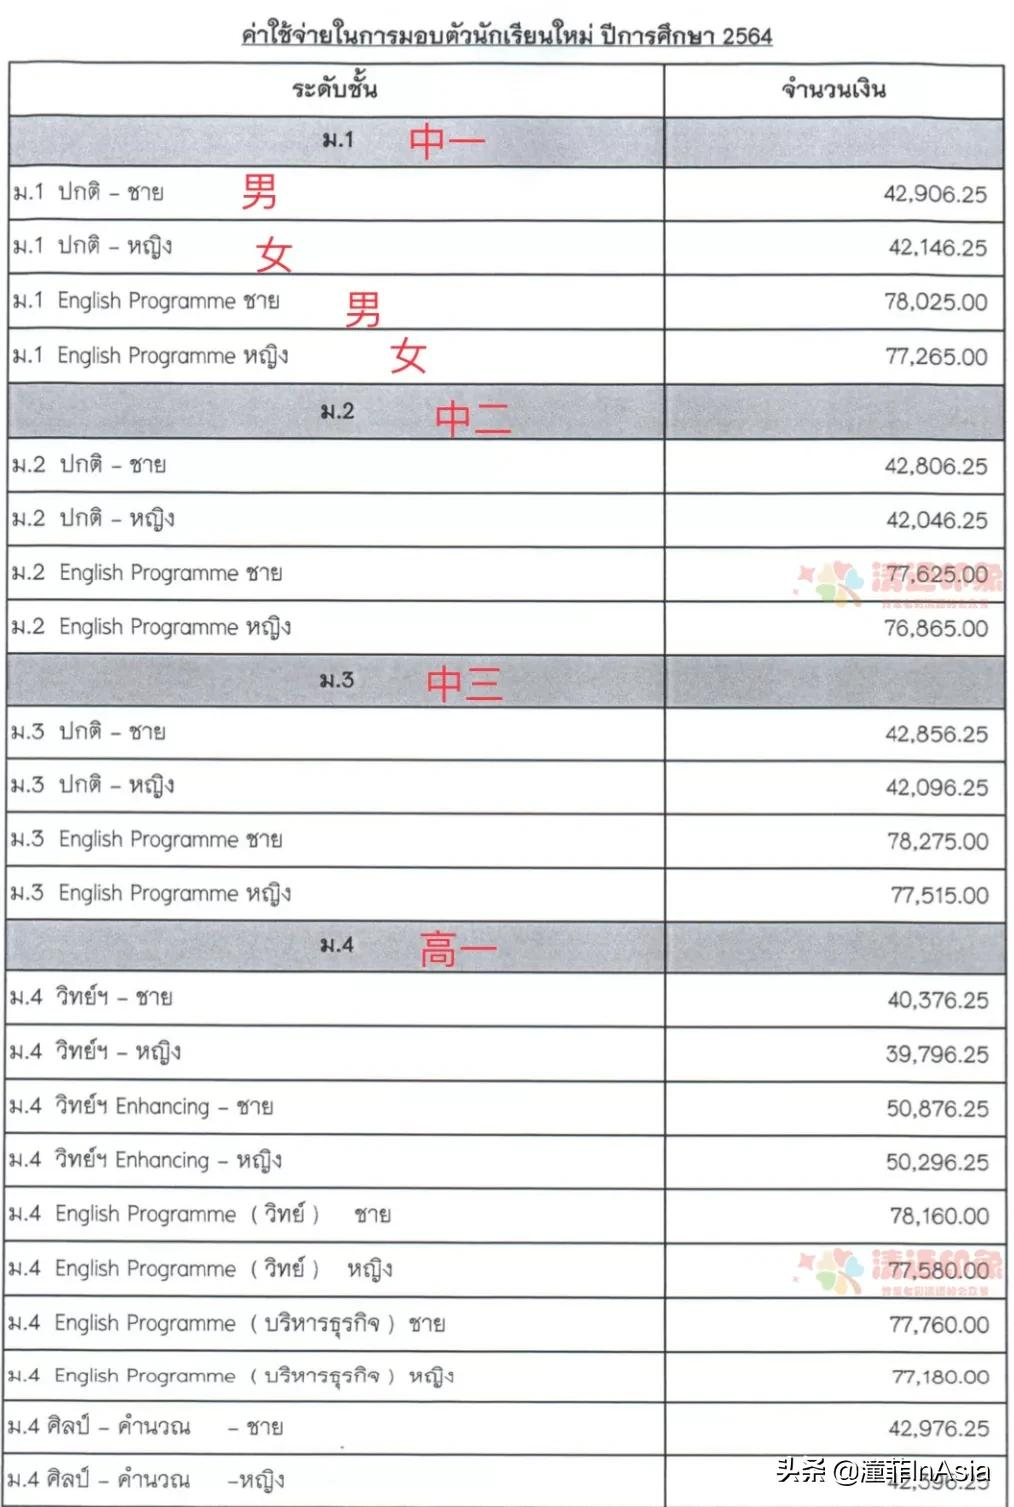 ค่าใช้จ่ายในการมอบตัวนักเรียนใหม่ ปีการศึกษา 2564
ระดับชั้น จำนวนเงิน
ม.1 中一
ม.1 ปกติ - ชาย 男 42,906.25
ม.1 ปกติ - หญิง 女 42,146.25
ม.1 English Programme ชาย 男 78,025.00
ม.1 English Programme หญิง 女 77,265.00
ม.2 中二
ม.2 ปกติ - ชาย 42,806.25
ม.2 ปกติ - หญิง 42,046.25
ม.2 English Programme ชาย 77,625.00
清迈印象
ม.2 English Programme หญิง 76,865.00
ม.3 中三
ม.3 ปกติ - ชาย 42,856.25
ม.3 ปกติ - หญิง 42,096.25
ม.3 English Programme ชาย 78,275.00
ม.3 English Programme หญิง 77,515.00
ม.4 高一
ม.4 วิทย์ฯ - ชาย 40,376.25
ม.4 วิทย์ฯ - หญิง 39,796.25
ม.4 วิทย์ฯ Enhancing - ชาย 50,876.25
ม.4 วิทย์ฯ Enhancing - หญิง 50,296.25
ม.4 English Programme ( วิทย์ ) ชาย 78,160.00
ม.4 English Programme ( วิทย์ ) หญิง 77,580.00
清迈印象
ม.4 English Programme ( บริหารธุรกิจ ) ชาย 77,760.00
ม.4 English Programme ( บริหารธุรกิจ ) หญิง 77,180.00
ม.4 ศิลป์ - คำนวณ - ชาย 42,976.25
ม.4 ศิลป์ - คำนวณ -หญิง 42,396.25
头条 @潼菲InAsia